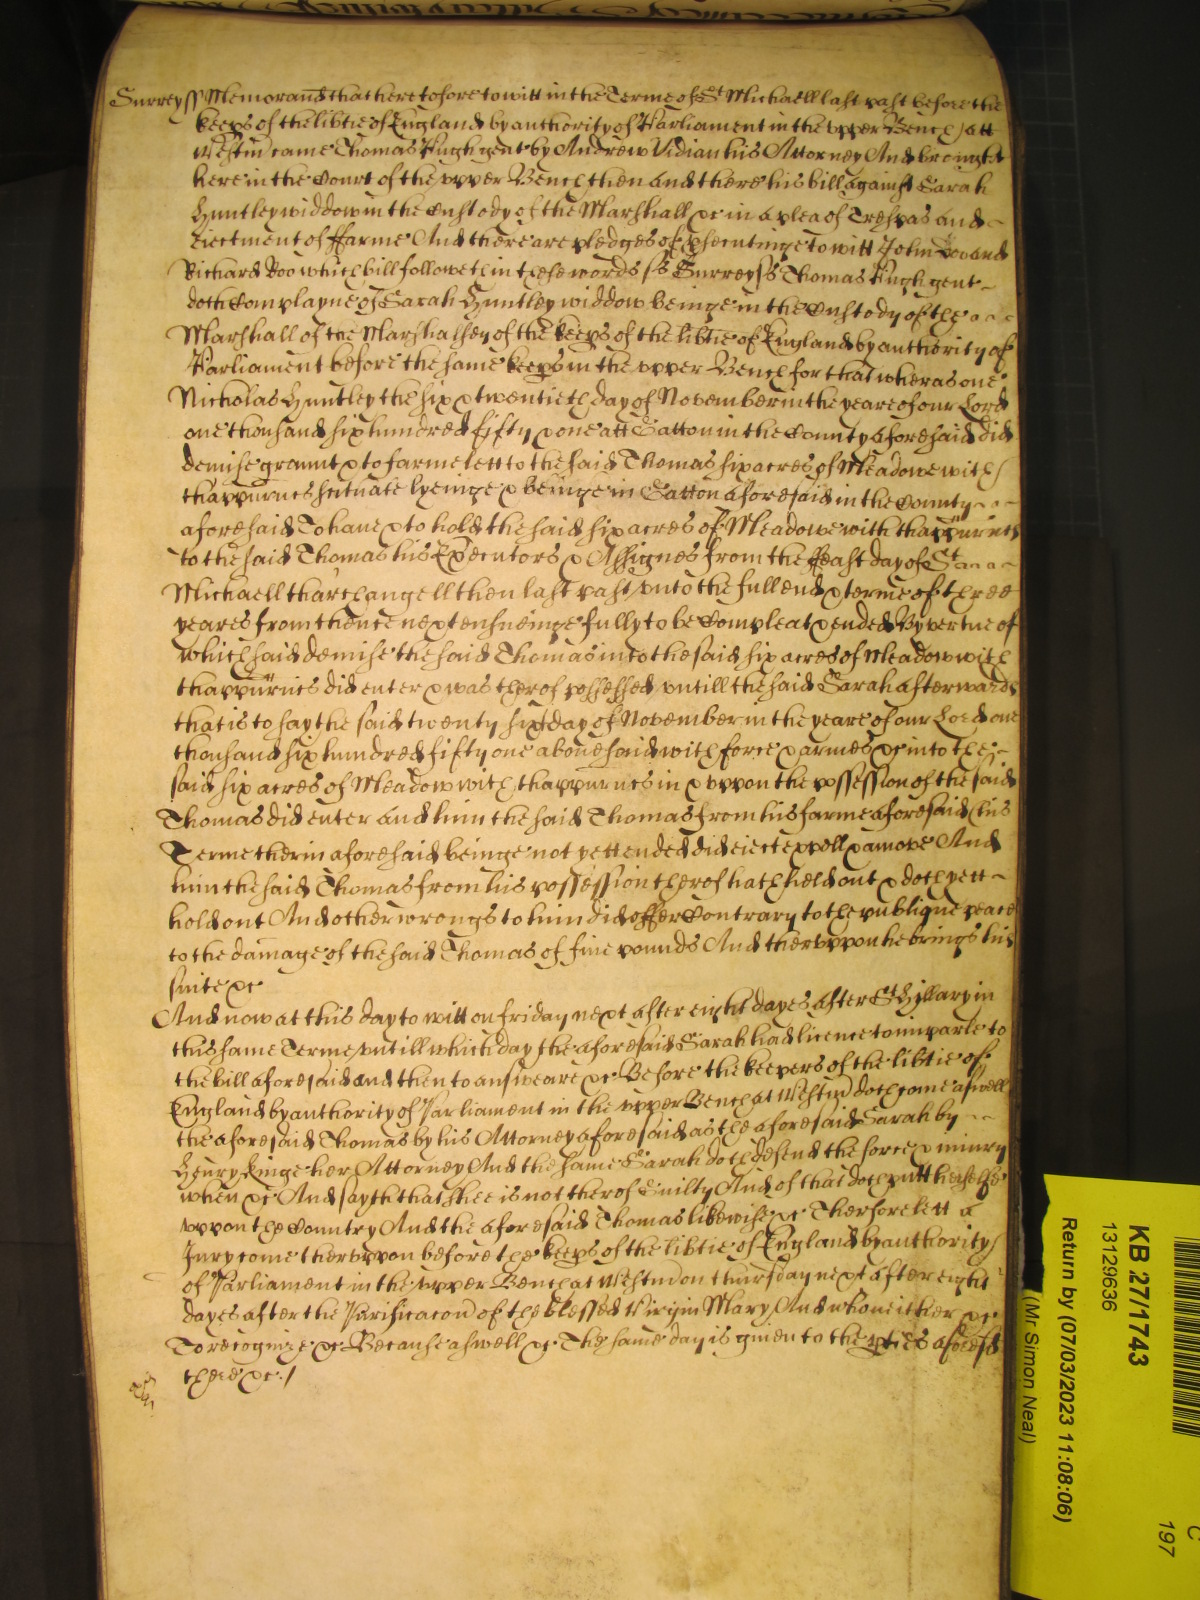 Surrey ss Memorand that heretofore to witt in the Terme of St Michaell last past before the
keeps of the libtie of England by authority of Parliament in the vpper Bench att
Westm came Thomas Pugh gent by Andrew Vidian his Attorney And brought
here in the Court of the vpper Bench then and there his bill against Sarah
Huntley widdow in the Custody of the Marshall &c in a plea of Trespas and
eiectment of ffarme And there are pledges of psecutinge to witt John Doo and
Richard Roo which bill followeth in these words ss Surrey ss Thomas Pugh gent
doth Complayne of Sarah Huntley widdow beinge in the Custody of the
Marshall of the Marshalsey of the keeps of the libtie of England by authority of
Parliament before the same keeps in the vpper Bench for that wheras one
Nicholas Huntley the six & twentieth day of November in the yeare of our Lord
one thousand six hundred fifty & one att Catton in the County aforesaid did
demise graunt & to farme lett to the said Thomas six acres of Meadowe with
thappurncs scituate lyeinge & beinge in Catton aforesaid in the County
aforesaid To haue & to hold the said six acres of Meadowe with thappurncs
to the said Thomas his Executors & Assignes from the ffeast day of St
Michaell tharchangell then last past vnto the full end & terme of three
yeares from thence next ensueinge fully to be Compleat & ended By vertue of
which said demise the said Thomas into the said six acres of Meadow with
thappurncs did enter & was therof possessed vntill the said Sarah afterwards
that is to say the said twenty sixt day of November in the yeare of our Lord one
thousand six hundred fifty one abouesaid with force & armes &c into the
said six acres of Meadow with thappurncs in & vppon the possession of the said
Thomas did enter and him the said Thomas from his farme aforesaid (his
Terme therin aforesaid beinge not yett ended did eiecte expell & amove And
him the said Thomas from his possession therof hath held out & doth yett
hold out And other wrongs to him did offer Contrary to the publique peace
to the damage of the said Thomas of fiue pounds And thervppon he brings his
suite &c
And now at this day to witt on friday next after eight dayes after St Hillary in
this same Terme vntill which day the aforesaid Sarah had licence to imparle to
the bill aforesaid and then to answeare &c Before the keepers of the libtie of
England by authority of Parliament in the vpper Bench at Westm doth come aswell
the aforesaid Thomas by his Attorney aforesaid as the aforesaid Sarah by
Henry Kinge her Attorney And the same Sarah doth defend the force & iniury
when &c And sayth that shee is not therof Guilty And of that doth putt herselfe
vppon the Country And the aforesaid Thomas likewise &c Therfore lett a
Jury come thervppon before the keeps of the libtie of England by authority
of Parliament in the vpper Bench at Westm on thursday next after eight
dayes after the Purificacon of the blessed Virgin Mary And who neither &c
To recognize &c Because aswell &c The same day is giuen to the pties aforesd
there &c
KB 27/1743
13129636
Return by (07/03/2023 11:08:06)
(Mr Simon Neal)
C
197